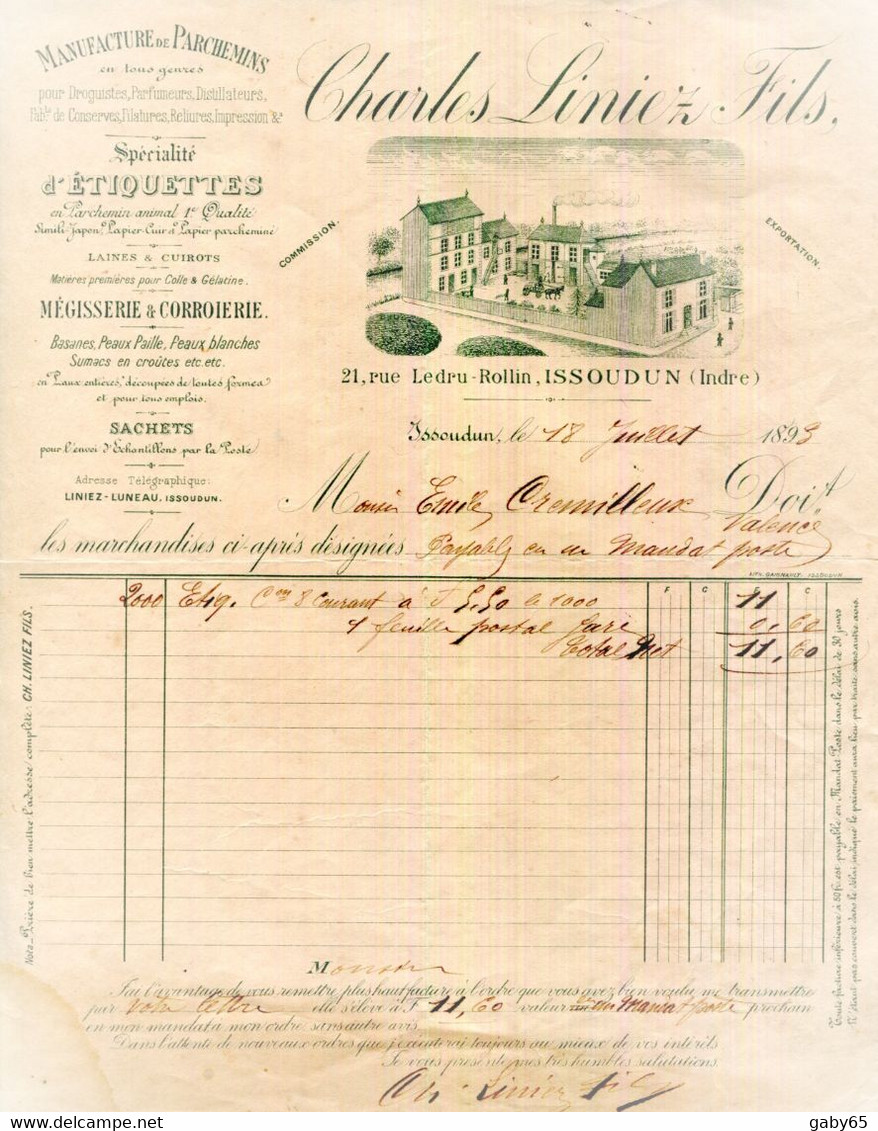 MANUFACTURE DE PARCHEMINS
en tous genres
pour Droguistes, Parfumeurs, Distillateurs,
Fab.ts de Conserves, Filatures, Reliures, Impression &a
Spécialité
d'ÉTIQUETTES
en Parchemin animal 1re Qualité
Simili-Japon, Papier-Cuir & Papier parcheminé
LAINES & CUIROTS
Matières premières pour Colle & Gélatine.
MÉGISSERIE & CORROIERIE.
Basanes, Peaux Paille, Peaux blanches
Sumacs en croûtes etc. etc.
en Peaux entières, découpées de toutes formes
et pour tous emplois.
SACHETS
pour l'envoi d'Échantillons par la Poste
Adresse Télégraphique:
LINIEZ-LUNEAU. ISSOUDUN.
Charles Liniez Fils,
COMMISSION.
EXPORTATION.
21, rue Ledru-Rollin, ISSOUDUN (Indre)
Issoudun, le 18 Juillet 1893
Monsieur Emile Cremilleux Doit
Valence
les marchandises ci-après désignées Payable en un Mandat poste
LITH. GAIGNAULT. ISSOUDUN
F C F C
2000 Etiq. Cme 8 Courant à F 5.50 le 1000 11
1 feuille postal gare 0,60
Total Net 11,60
Nota_Prière de bien mettre l'adresse complète: CH. LINIEZ FILS.
Toute facture inférieure à 50 frs est payable en Mandat-Poste dans le délai de 30 jours
N'étant pas couvert dans le délai indiqué le paiement aura lieu par traite sans autre avis.
Monsieur
J'ai l'avantage de vous remettre plus haut facture à l'ordre que vous avez bien voulu me transmettre
par votre lettre elle s'élève à F 11,60 valeur en un Mandat poste prochain
en mon mandat à mon ordre sans autre avis.
Dans l'attente de nouveaux ordres que j'exécuterai toujours au mieux de vos intérêts
Je vous présente mes très humbles salutations.
Ch. Liniez fils
gaby65